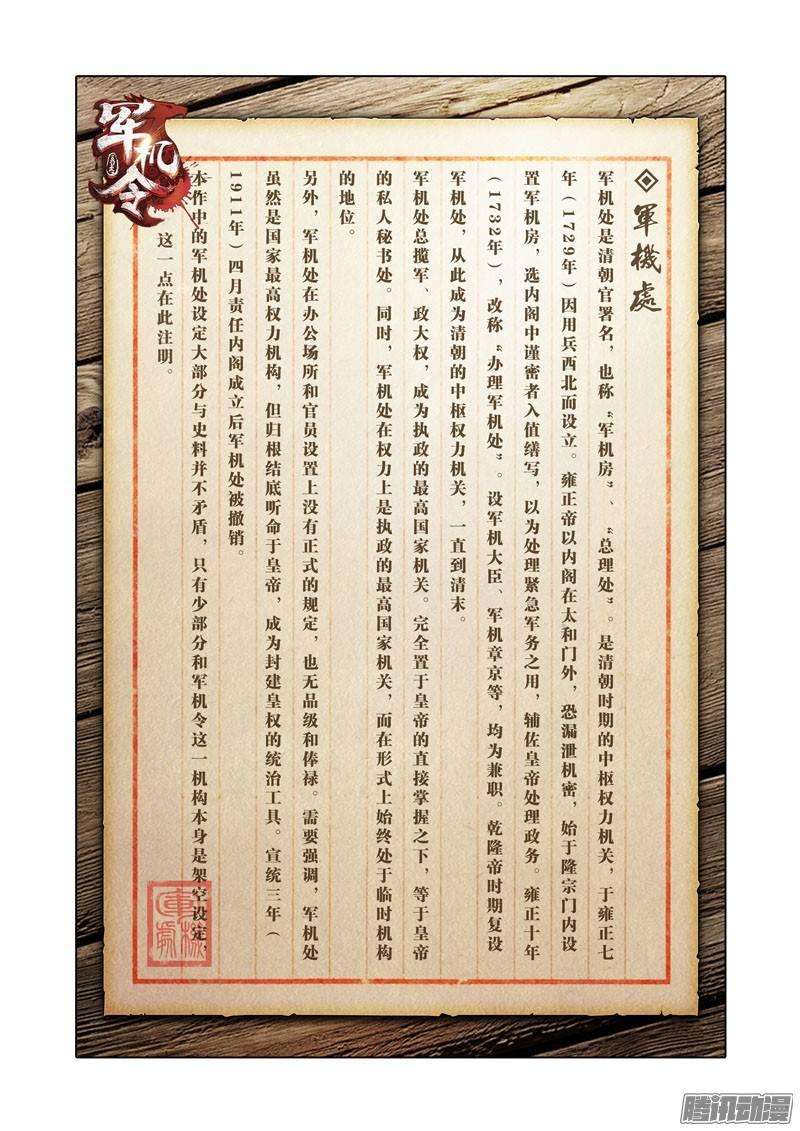 軍機處
军机处是清朝官署名，也称“军机房”、“总理处”。是清朝时期的中枢权力机关，于雍正七
年（1729年）因用兵西北而设立。雍正帝以内阁在太和门外，恐漏泄机密，始于隆宗门内设
置军机房，选内阁中谨密者入值缮写，以为处理紧急军务之用，辅佐皇帝处理政务。雍正十年
（1732年），改称“办理军机处”。设军机大臣、军机章京等，均为兼职。乾隆帝时期复设
军机处，从此成为清朝的中枢权力机关，一直到清末。
军机处总揽军、政大权，成为执政的最高国家机关。完全置于皇帝的直接掌握之下，等于皇帝
的私人秘书处。同时，军机处在权力上是执政的最高国家机关，而在形式上始终处于临时机构
的地位。
另外，军机处在办公场所和官员设置上没有正式的规定，也无品级和俸禄。需要强调，军机处
虽然是国家最高权力机构，但归根结底听命于皇帝，成为封建皇权的统治工具。宣统三年（
1911年）四月责任内阁成立后军机处被撤销。
本作中的军机处设定大部分与史料并不矛盾，只有少部分和军机令这一机构本身是架空设定，
这一点在此注明。
军机令
軍機處
腾讯动漫